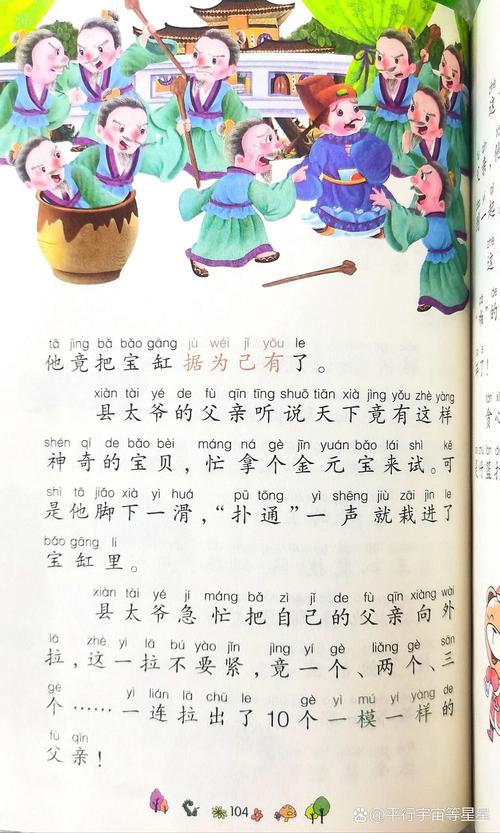 tā jìng bǎ bǎo gāng jù wéi jǐ yǒu le
他竟把宝缸据为己有了。
xiàn tài yé de fù qīn tīng shuō tiān xià jìng yǒu zhè yàng
县太爷的父亲听说天下竟有这样
shén qí de bǎo bèi máng ná gè jīn yuán bǎo lái shì kě
神奇的宝贝，忙拿个金元宝来试。可
shì tā jiǎo xià yì huá pū tōng yì shēng jiù zāi jìn le
是他脚下一滑，“扑通”一声就栽进了
bǎo gāng li
宝缸里。
xiàn tài yé jí máng bǎ zì jǐ de fù qīn xiàng wài
县太爷急忙把自己的父亲向外
lā zhè yì lā bú yào jǐn jìng yí gè liǎng gè sān
拉，这一拉不要紧，竟一个、两个、三
gè yì lián lā chū le gè yì mú yí yàng de
个……一连拉出了10个一模一样的
fù qīn
父亲！
104
@平行宇宙等星星